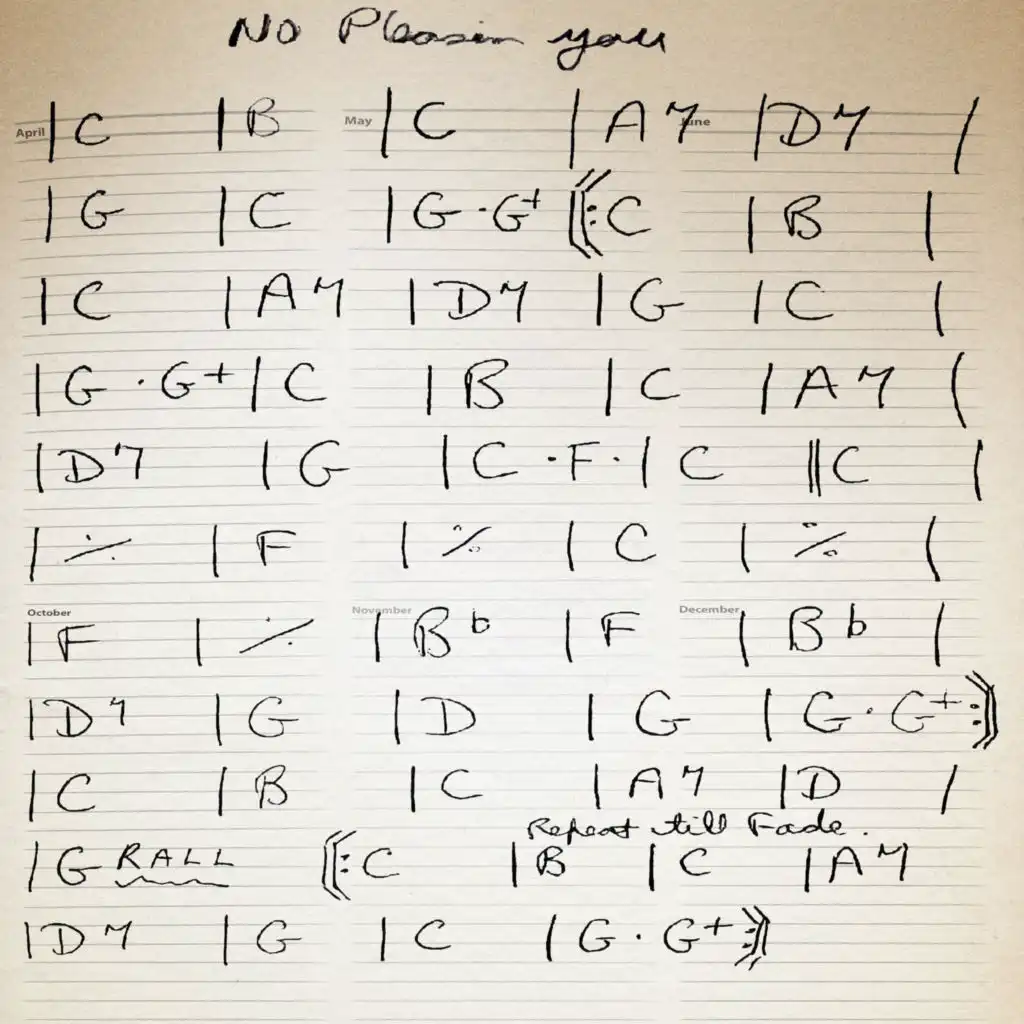 No Pleasin you
April | C | B May | C | A7 June | D7 |
| G | C | G · G+ ‖: C | B |
| C | A7 | D7 | G | C |
| G · G+ | C | B | C | A7 |
| D7 | G | C · F · | C ‖ C |
| ٪ | F | ٪ | C | ٪ |
October November December
| F | ٪ | Bb | F | Bb |
| D7 | G | D | G | G · G+ :‖
| C | B | C | A7 | D |
Repeat till Fade.
| G RALL ‖: C | B | C | A7
| D7 | G | C | G · G+ :‖